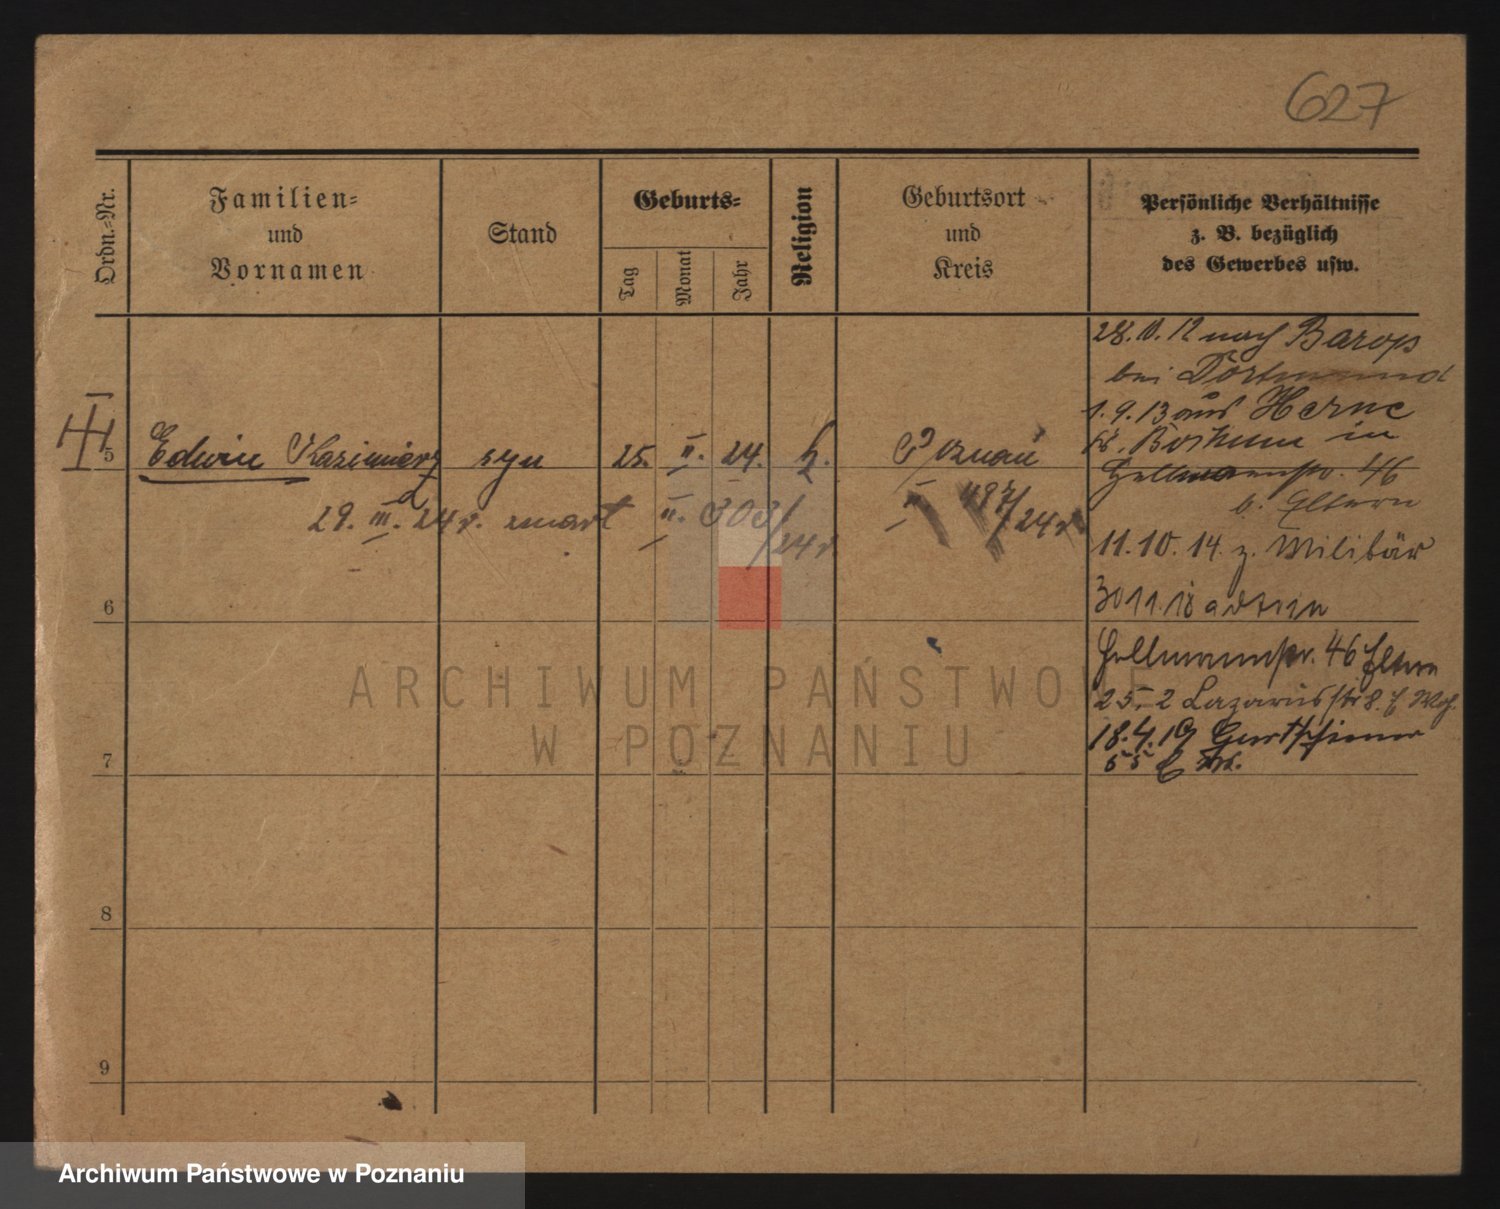 627
Ordn.-Nr.
Familien-
und
Vornamen
Stand
Geburts-
Tag
Monat
Jahr
Religion
Geburtsort
und
Kreis
Persönliche Verhältnisse
z. B. bezüglich
des Gewerbes usw.
28.10.12 nach Barop
bei Dortmund
1.9.13 aus Herne
Kr. Bochum in
Hellmannstr. 46
b. Eltern
11.10.14. z. Militär
30 11.18
Hellmannstr. 46 Eltern
25. 2 Lazarusstr 8.
18.4.19
55
5 Edwin Kazimierz syn 25. II. 24. k. Poznań
29. III. 24 r. zmarł II. 303/24 r
II 497/24 r.
6
7
8
9
ARCHIWUM PAŃSTWOWE
W POZNANIU
Archiwum Państwowe w Poznaniu